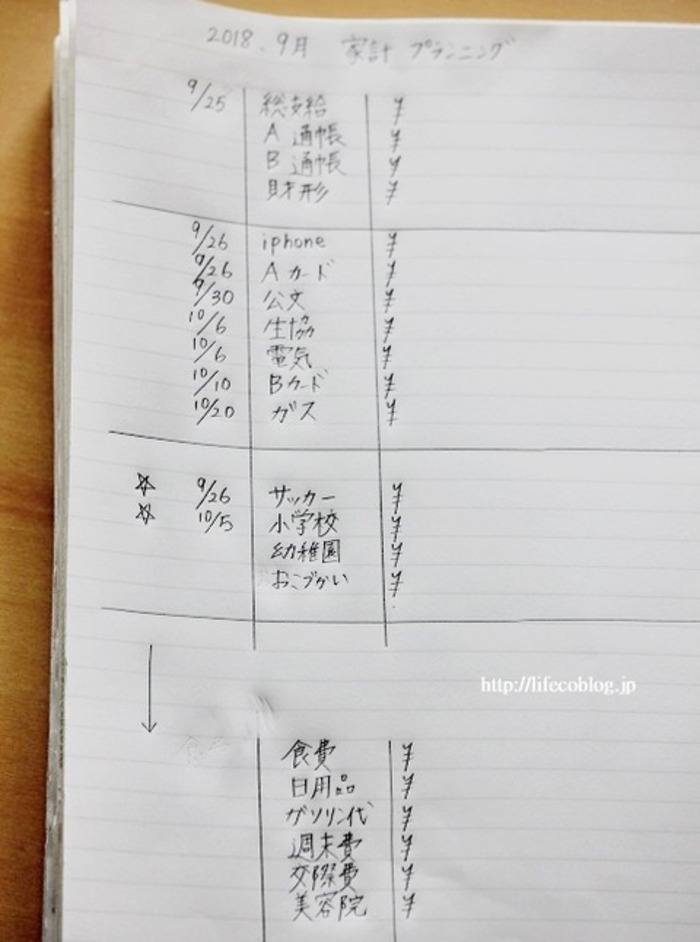 2018.9月 家計 プランニング
9/25 総支給 ¥
A 通帳 ¥
B 通帳 ¥
財形 ¥
9/26 iphone ¥
9/26 Aカード ¥
9/30 公文 ¥
10/6 生協 ¥
10/6 電気 ¥
10/10 Bカード ¥
10/20 ガス ¥
☆ 9/26 サッカー ¥
☆ 10/5 小学校 ¥
幼稚園 ¥
おこづかい ¥
http://lifecoblog.jp
食費 ¥
日用品 ¥
ガソリン代 ¥
週末費 ¥
交際費 ¥
美容院 ¥